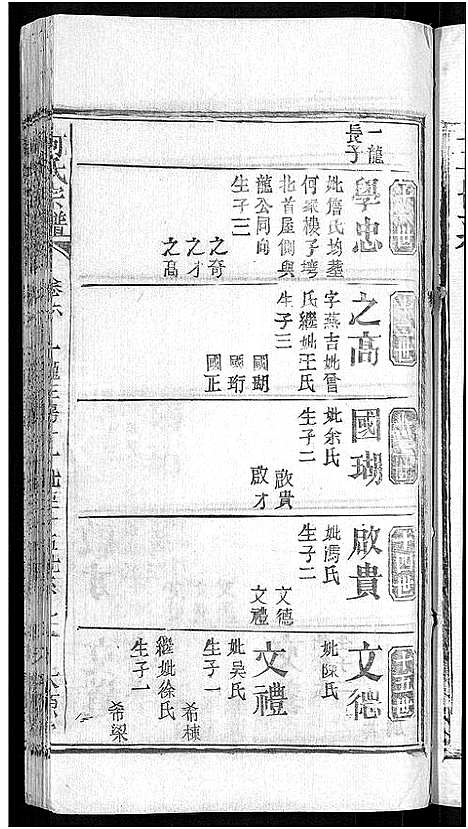 一龍
長子
學忠
妣詹氏均葬
何家樓子塆
北首屋側與
龍公同向
生子三
之奇
之才
之高
之高
字燕吉妣曾
氏繼妣王氏
生子三
國瑚
國珩
國正
國瑚
妣余氏
生子二
啟貴
啟才
啟貴
妣馮氏
生子二
文德
文禮
文德
妣陳氏
文禮
妣吳氏
生子一
希棟
繼妣徐氏
生子一
希梁
何氏宗譜
卷六